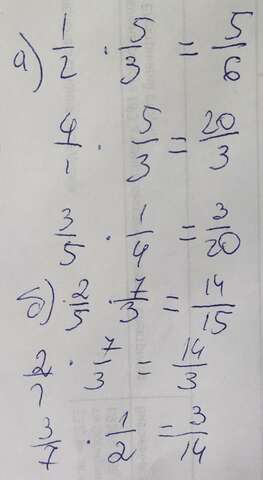 а) 1/2 · 5/3 = 5/6
4/1 · 5/3 = 20/3
3/5 · 1/4 = 3/20
б) 2/5 · 7/3 = 14/15
2/1 · 7/3 = 14/3
3/7 · 1/2 = 3/14